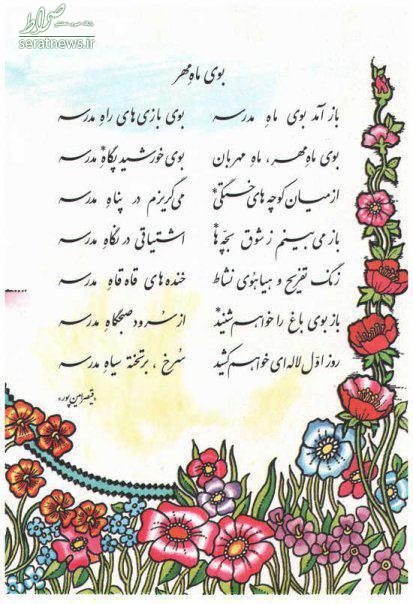 صراط
seratnews.ir
بوی ماهِ مهر
باز آمد بوی ماهِ مدرسه بوی بازی‌های راهِ مدرسه
بوی ماهِ مهر، ماهِ مهربان بوی خورشیدِ پگاهِ* مدرسه
از میان کوچه‌های خستگی* می‌گریزم در پناهِ مدرسه
باز می‌بینم ز شوق بچّه‌ها* اشتیاقی در نگاهِ مدرسه
زنگ تفریح و هیاهوی نشاط خنده‌های قاه قاهِ مدرسه
باز بوی باغ را خواهم شنید* از سرود صبحگاهِ مدرسه
روز اوّل لاله‌ای خواهم کشید سرخ، بر تختهٔ سیاهِ مدرسه
«قیصر امین‌پور»